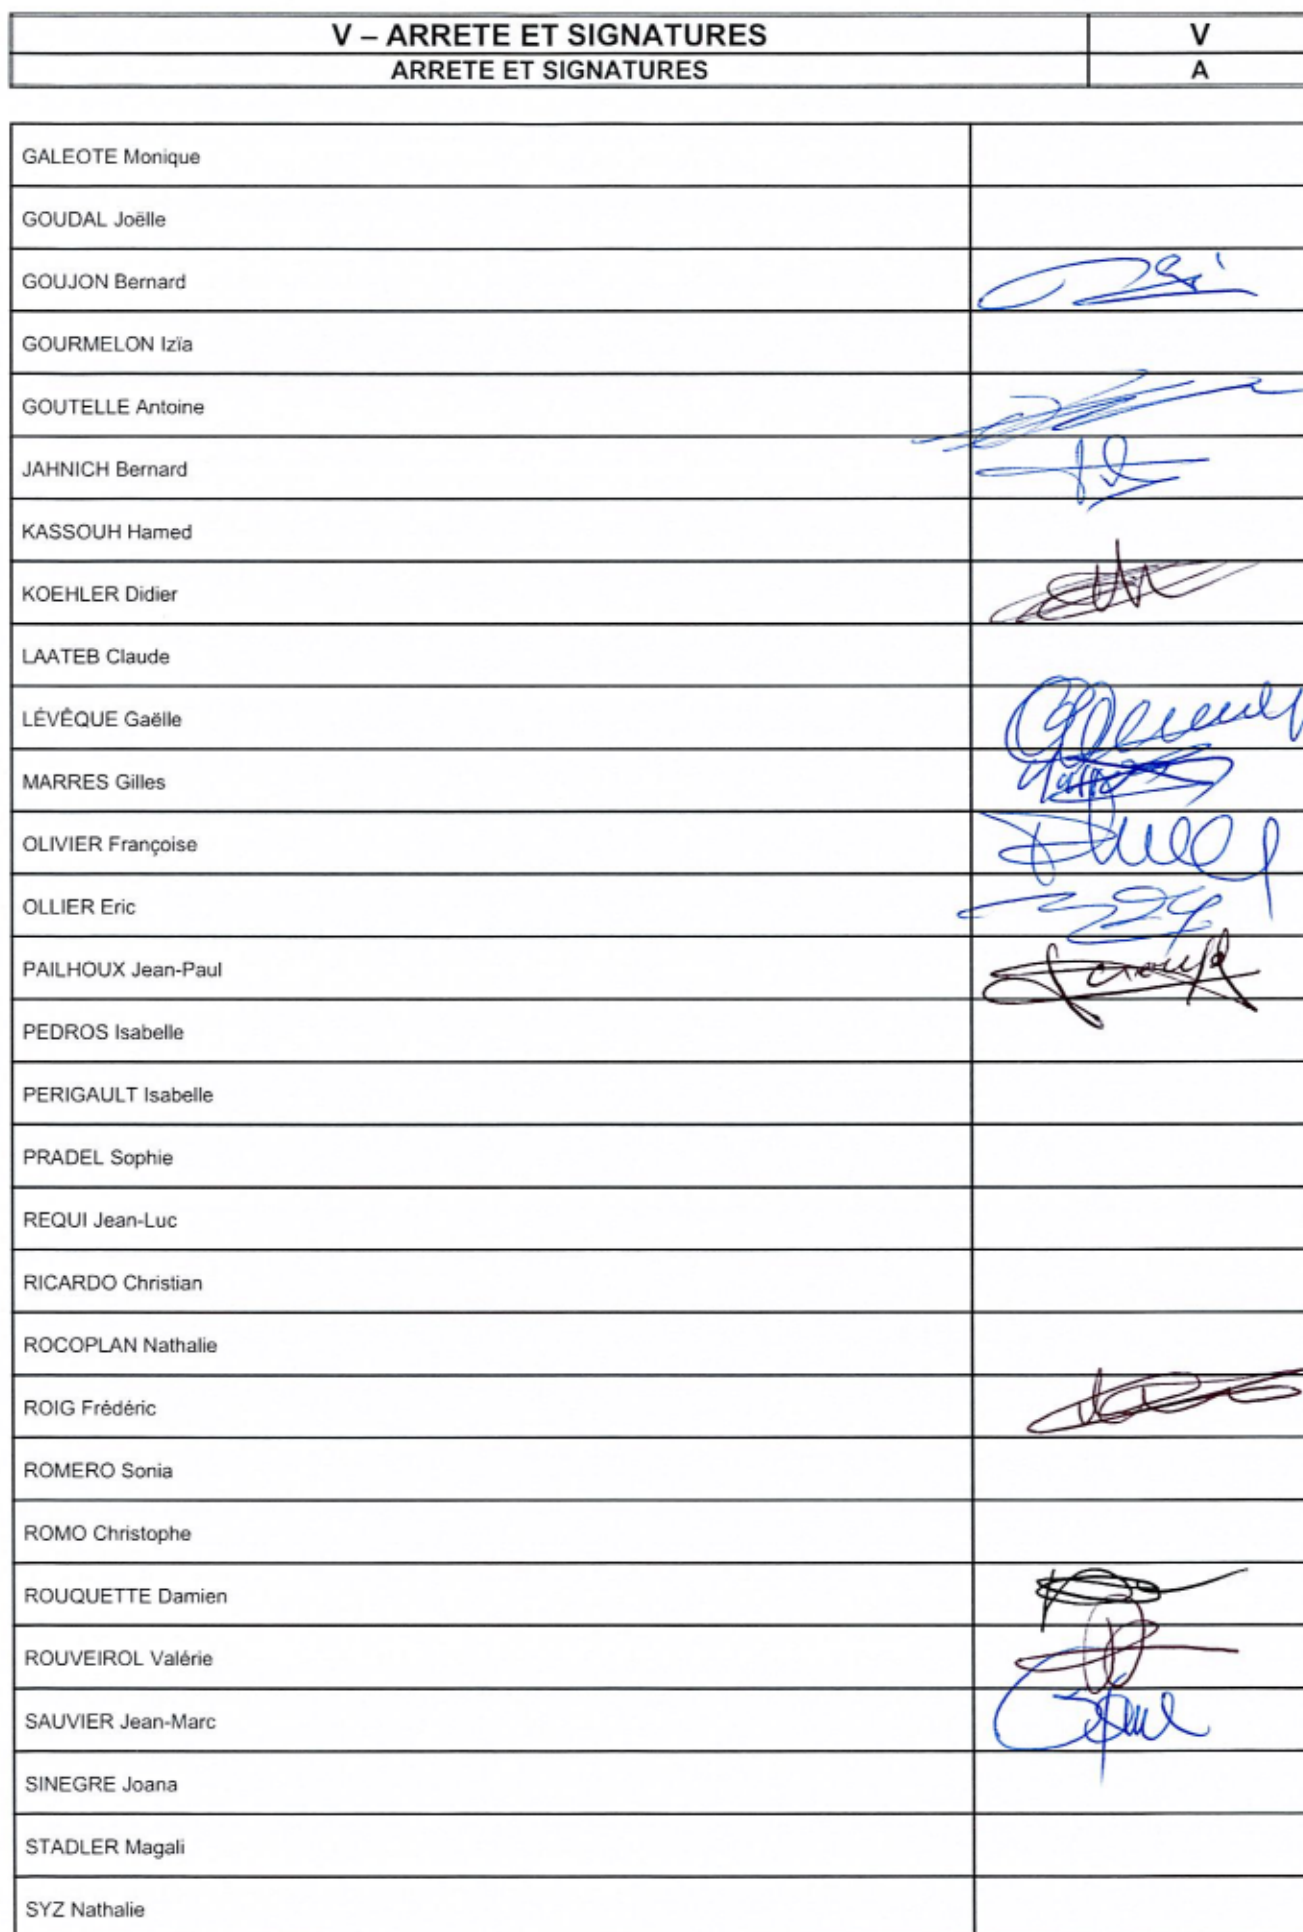 V – ARRETE ET SIGNATURES V
ARRETE ET SIGNATURES A
GALEOTE Monique
GOUDAL Joëlle
GOUJON Bernard
GOURMELON Izïa
GOUTELLE Antoine
JAHNICH Bernard
KASSOUH Hamed
KOEHLER Didier
LAATEB Claude
LÉVÊQUE Gaëlle
MARRES Gilles
OLIVIER Françoise
OLLIER Eric
PAILHOUX Jean-Paul
PEDROS Isabelle
PERIGAULT Isabelle
PRADEL Sophie
REQUI Jean-Luc
RICARDO Christian
ROCOPLAN Nathalie
ROIG Frédéric
ROMERO Sonia
ROMO Christophe
ROUQUETTE Damien
ROUVEIROL Valérie
SAUVIER Jean-Marc
SINEGRE Joana
STADLER Magali
SYZ Nathalie